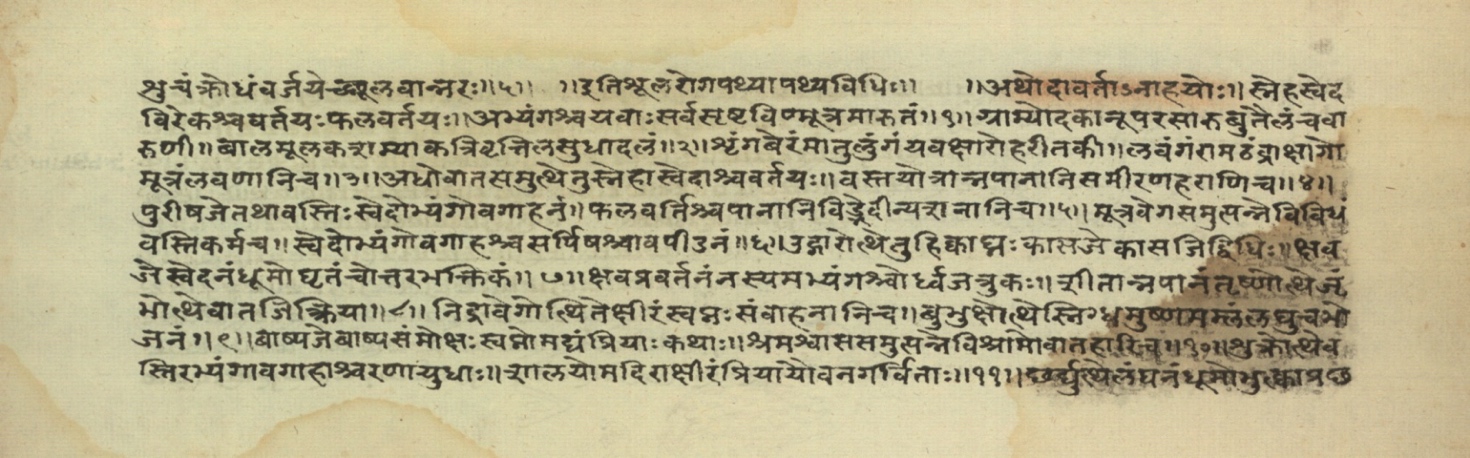 शुचं क्रोधं वर्जयेच्छूलवान्नरः॥५॥ ॥इतिशूलरोगपथ्यापथ्यविधिः॥ ॥अथोदावर्ताऽनाहयोः॥ स्नेहस्वेद
विरेकश्चवर्तयःफलवर्तयः॥अभ्यंगश्चयवाःसर्वसृष्टविण्मूत्रमारुतं॥१॥ग्राम्योदकानूपरसारुबुतैलंचवा
रुणी॥बालमूलकशम्याकत्रिवृत्तिलसुधादलं॥२॥शृंगबेरंमातुलुंगंयवक्षारोहरीतकी॥लवंगंरामठंद्राक्षागो
मूत्रंलवणानिच॥३॥अधोवातसमुत्थेतुस्नेहास्वेदाश्चवर्तयः॥वस्तयोत्रान्नपानानिसमीरणहराणिच॥४॥
पुरीषजेतथावस्तिःस्वेदोभ्यंगोवगाहनं॥फलवर्तिश्चपानानिविड्भेदीन्यशनानिच॥५॥मूत्रवेगसमुत्पन्नेविविधं
वस्तिकर्मच॥स्वेदोभ्यंगोवगाहश्चसर्पिषश्चावपीडनं॥६॥उद्गारोत्थेतुहिक्काघ्नःकासजेकासजिद्विधिः॥क्षव
जेस्वेदनंधूमोघृतंचोत्तरभक्तिकं॥७॥क्षवप्रवर्तनंनस्यमभ्यंगश्चोर्ध्वजत्रुकः॥शीतान्नपानंतृष्णोत्थेजृं
भोत्थेवातजित्क्रिया॥८॥निद्रावेगोत्थितेक्षीरंस्वप्नःसंवाहनानिच॥बुभुक्षोत्थेस्निग्धमुष्णमम्लंलघुचभो
जनं॥९॥बाष्पजेबाष्पसंमोक्षःस्वप्नोमद्यंप्रियाःकथाः॥श्रमश्वाससमुत्पन्नेविश्रामोवातहारिच॥१०॥शुक्रोत्थेव
स्तिरभ्यंगावगाहाश्चरणायुधाः॥शालयोमदिराक्षीरंप्रियायौवनगर्विताः॥११॥छर्द्युत्थेलंघनंधूमोभुक्काप्रछ